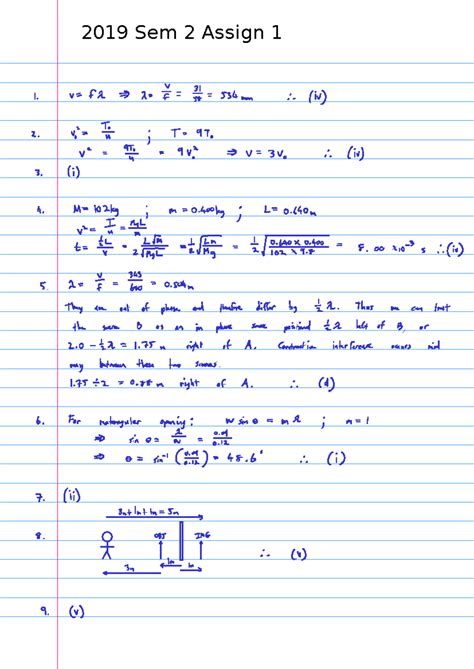 2019 Sem 2 Assign 1
1. v = fλ ⇒ λ = v/f = 31/58 = 534 mm ∴ (iv)
2. v₀² = T₀/μ ; T = 9T₀
v² = 9T₀/μ = 9v₀² ⇒ v = 3v₀ ∴ (iv)
3. (i)
4. M = 102 kg ; m = 0.400 kg ; L = 0.640 m
v² = T/μ = MgL/m
t = ½L/v = L√m/2√MgL = ½√Lm/Mg = ½√0.640 × 0.400/102 × 9.8 = 8.00 ×10⁻³ s ∴ (iv)
5. λ = v/f = 343/680 = 0.504 m
They are out of phase and therefore differ by ½λ. Thus we can treat
the B as in phase some ½λ left of B, or
2.0 − ½λ = 1.75 m right of A. interference occurs mid
way between these two sources.
1.75 ÷ 2 = 0.88 m right of A. ∴ (d)
6. For rectangular opening: w sin θ = mλ ; m = 1
⇒ sin θ = λ/w = 0.09/0.12
⇒ θ = sin⁻¹(0.09/0.12) = 48.6° ∴ (i)
7. (ii)
3m + 1m + 1m = 5m
8. OBJ IMG ∴ (v)
1m 1m
3m
9. (v)